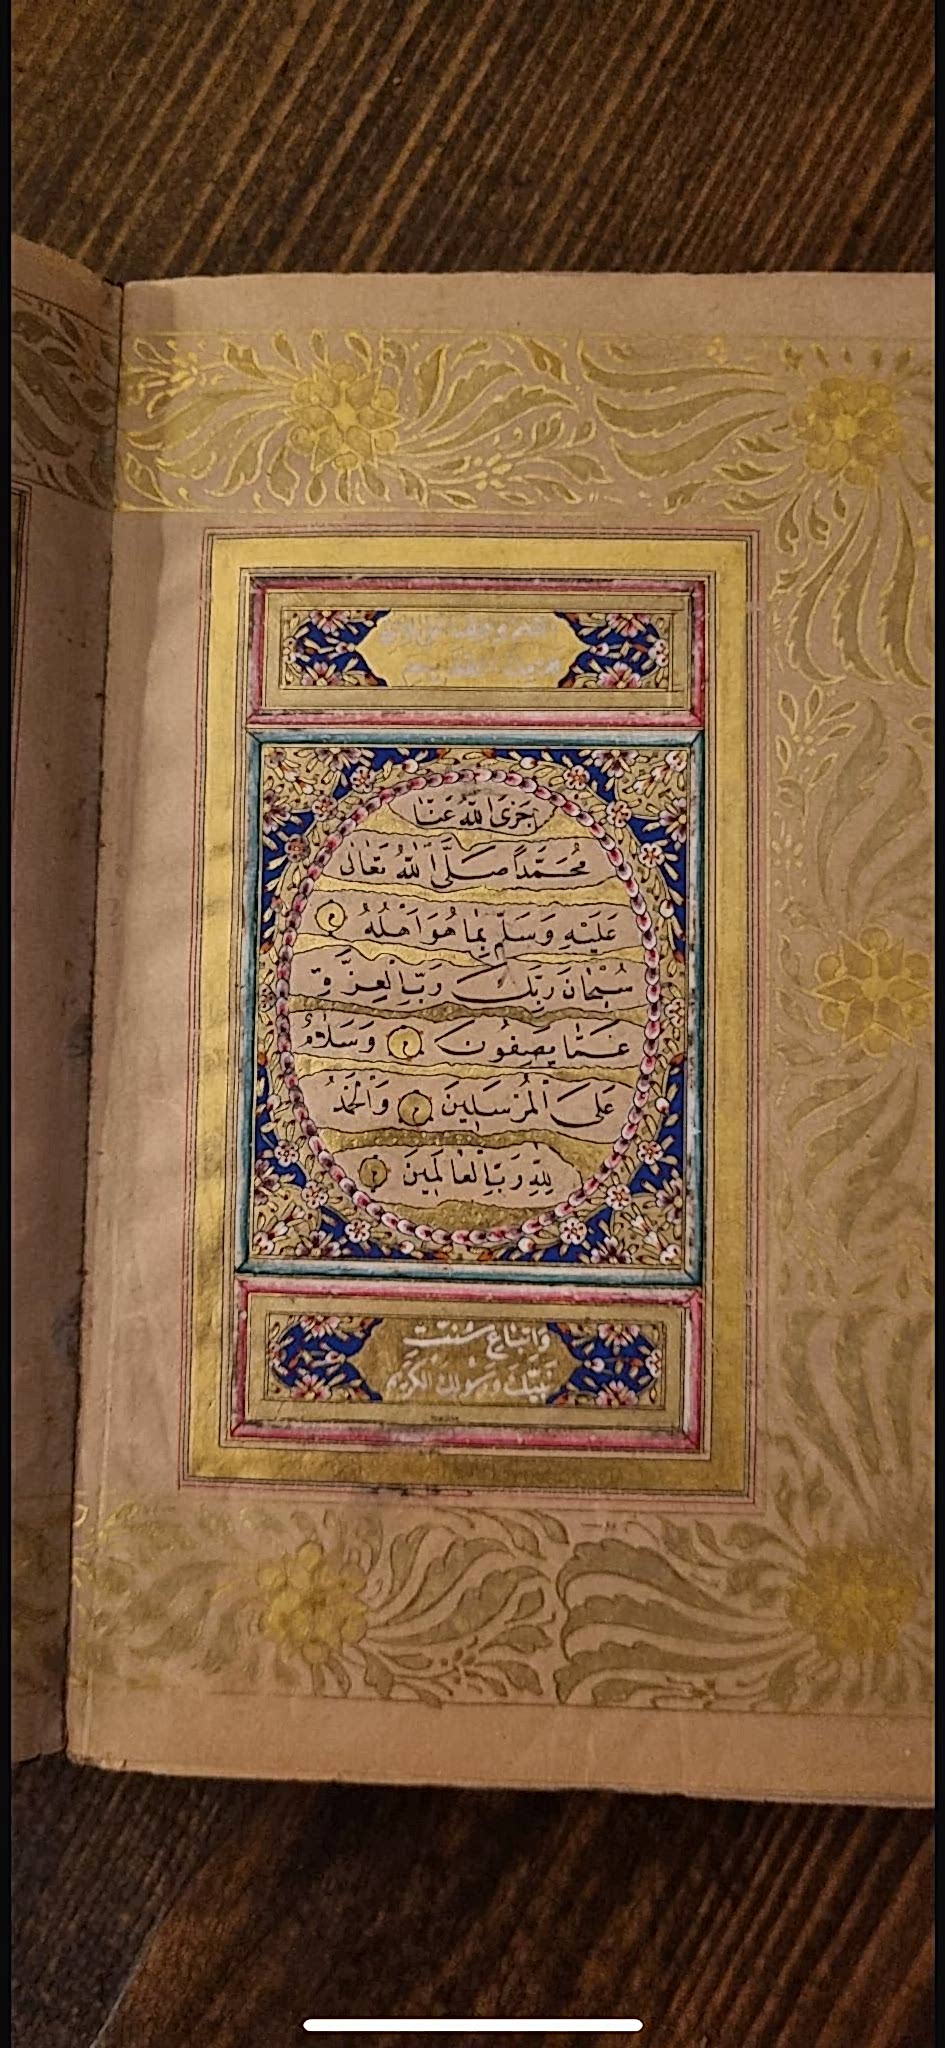 جَزَى اللّٰهُ عَنَّا
مُحَمَّدًا صَلَّى اللّٰهُ تَعَالٰى
عَلَيْهِ وَسَلَّمَ بِمَا هُوَ اَهْلُهُ
سُبْحَانَ رَبِّكَ رَبِّ الْعِزَّةِ
عَمَّا يَصِفُونَ وَسَلَامٌ
عَلَى الْمُرْسَلِينَ وَالْحَمْدُ
لِلّٰهِ رَبِّ الْعَالَمِينَ
وَاتِّبَاعِ سُنَّتِ
نَبِيِّكَ وَرَسُولِكَ الْكَرِيمِ